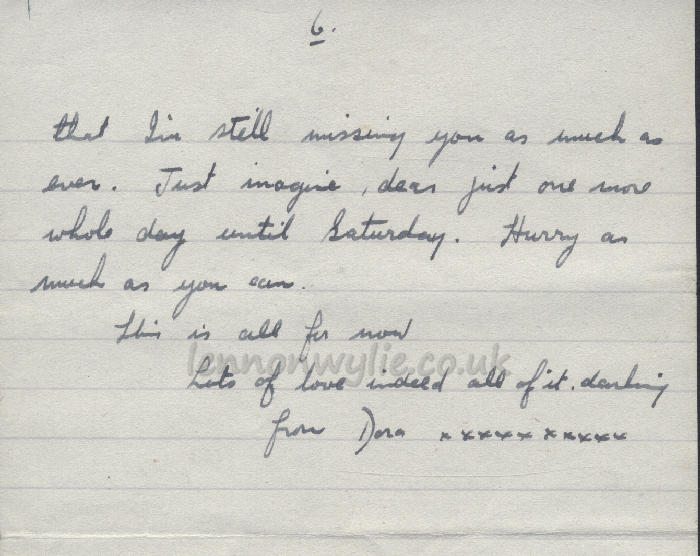 6.
that I'm still missing you as much as
ever. Just imagine, dear just one more
whole day until Saturday. Hurry as
much as you can.
This is all for now
lennonwylie.co.uk
Lots of love indeed all of it. darling
from Dora xxxxxxxxxxx